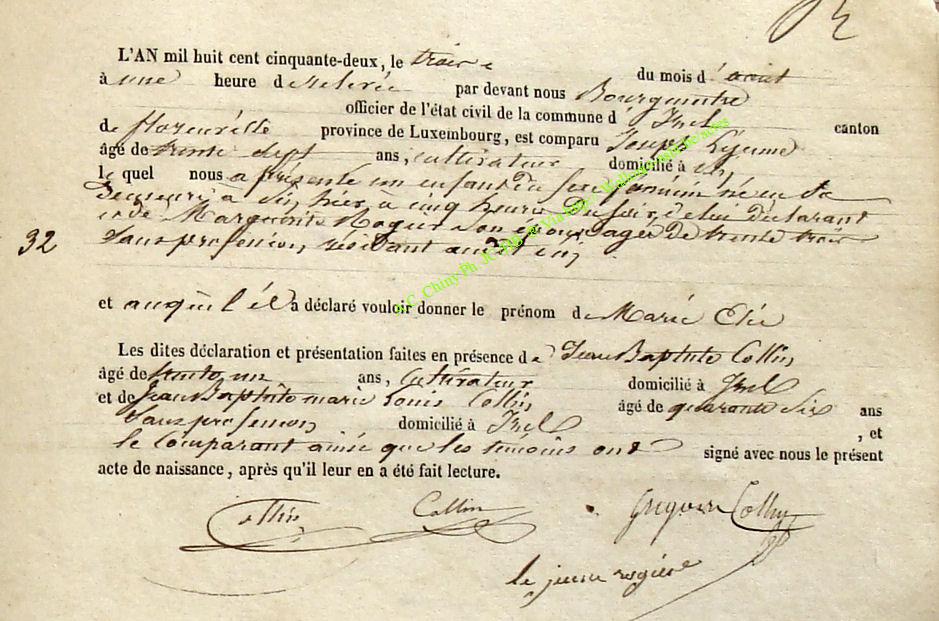 L'AN mil huit cent cinquante-deux, le trois du mois d'août
à une heure de relevée par devant nous Bourgmestre
officier de l'état civil de la commune d'Izel canton
de florenville province de Luxembourg, est comparu Joseph Lejeune
âgé de trente sept ans, cultivateur domicilié à
le quel nous a présenté un enfant du sexe féminin né en sa
demeure à hier à cinq heures du soir, de lui déclarant
et de Marguerite Rogier son épouse agée de trente trois
32 sans profession, résidant
et auquel il a déclaré vouloir donner le prénom de Marie
Les dites déclaration et présentation faites en présence de Jean Baptiste Collin
âgé de trente un ans, cultivateur domicilié à Izel
et de Jean Baptiste marie Louis Collin âgé de quarante six ans
sans profession domicilié à Izel , et
le comparant ainsi que les témoins ont signé avec nous le présent
acte de naissance, après qu'il leur en a été fait lecture.
Collin Collin Grégoire Collin
le jeune rogier